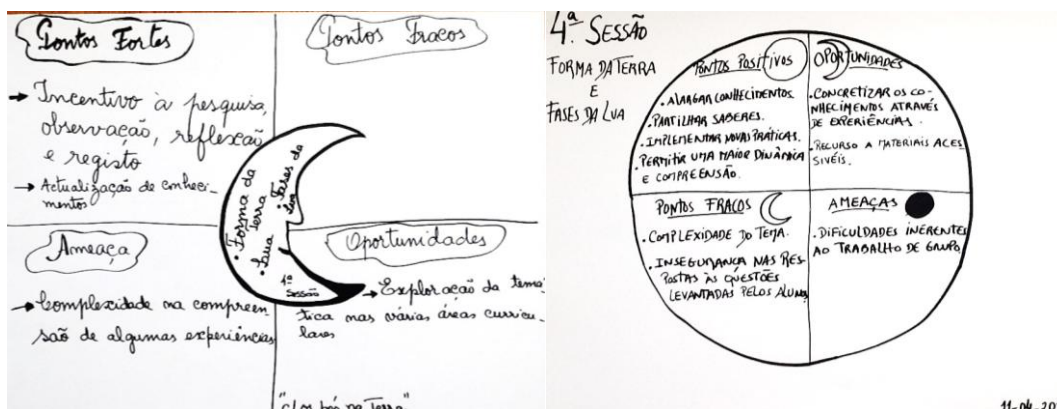 Pontos Fortes
→ Incentivo à pesquisa,
observação, reflexão
e registo
→ Actualização de conheci-
mentos
Pontos Fracos
• Forma da
Terra
• Lua
• Fases da
Lua
Sessão
Ameaça
→ Complexidade na compreen-
são de algumas experiências
Oportunidades
→ Exploração da temá-
tica nas várias áreas curricu-
lares
4ª SESSÃO
FORMA DA TERRA
E
FASES DA LUA
PONTOS POSITIVOS
• ALARGAR CONHECIMENTOS.
• PARTILHAR SABERES.
• IMPLEMENTAR NOVAS PRÁTICAS.
• PERMITIR UMA MAIOR DINÂMICA
E COMPREENSÃO.
OPORTUNIDADES
• CONCRETIZAR OS CO-
NHECIMENTOS ATRAVÉS
DE EXPERIÊNCIAS.
• RECURSO A MATERIAIS ACES
SIVÉIS.
PONTOS FRACOS
• COMPLEXIDADE DO TEMA.
• INSEGURANÇA NAS RES-
POSTAS ÀS QUESTÕES
LEVANTADAS PELOS ALUNOS
AMEAÇAS
• DIFICULDADES INERENTES
AO TRABALHO DE GRUPO
11-04-20